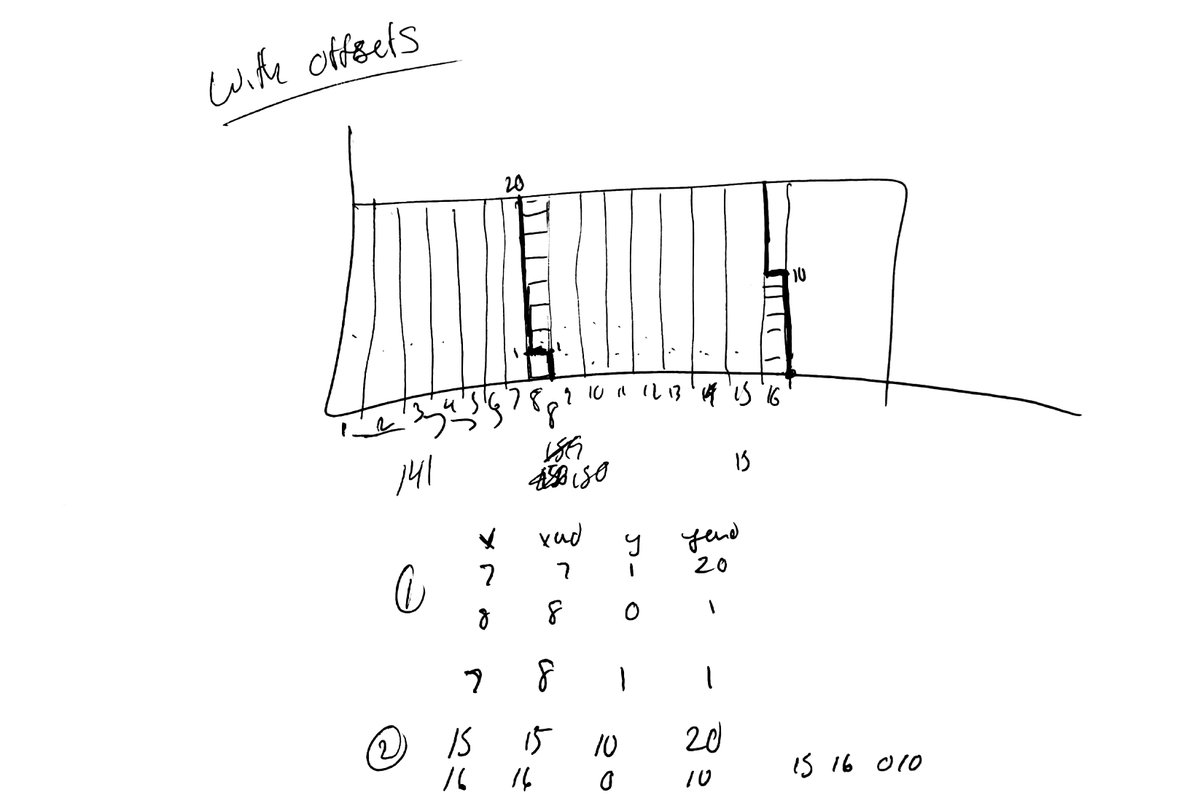 with offsets
20
10
1 1
1 2 3 4 5 6 7 8 9 10 11 12 13 14 15 16
8
141 150 15
x xend y yend
① 7 7 1 20
8 8 0 1
7 8 1 1
② 15 15 10 20
16 16 0 10 15 16 0 10